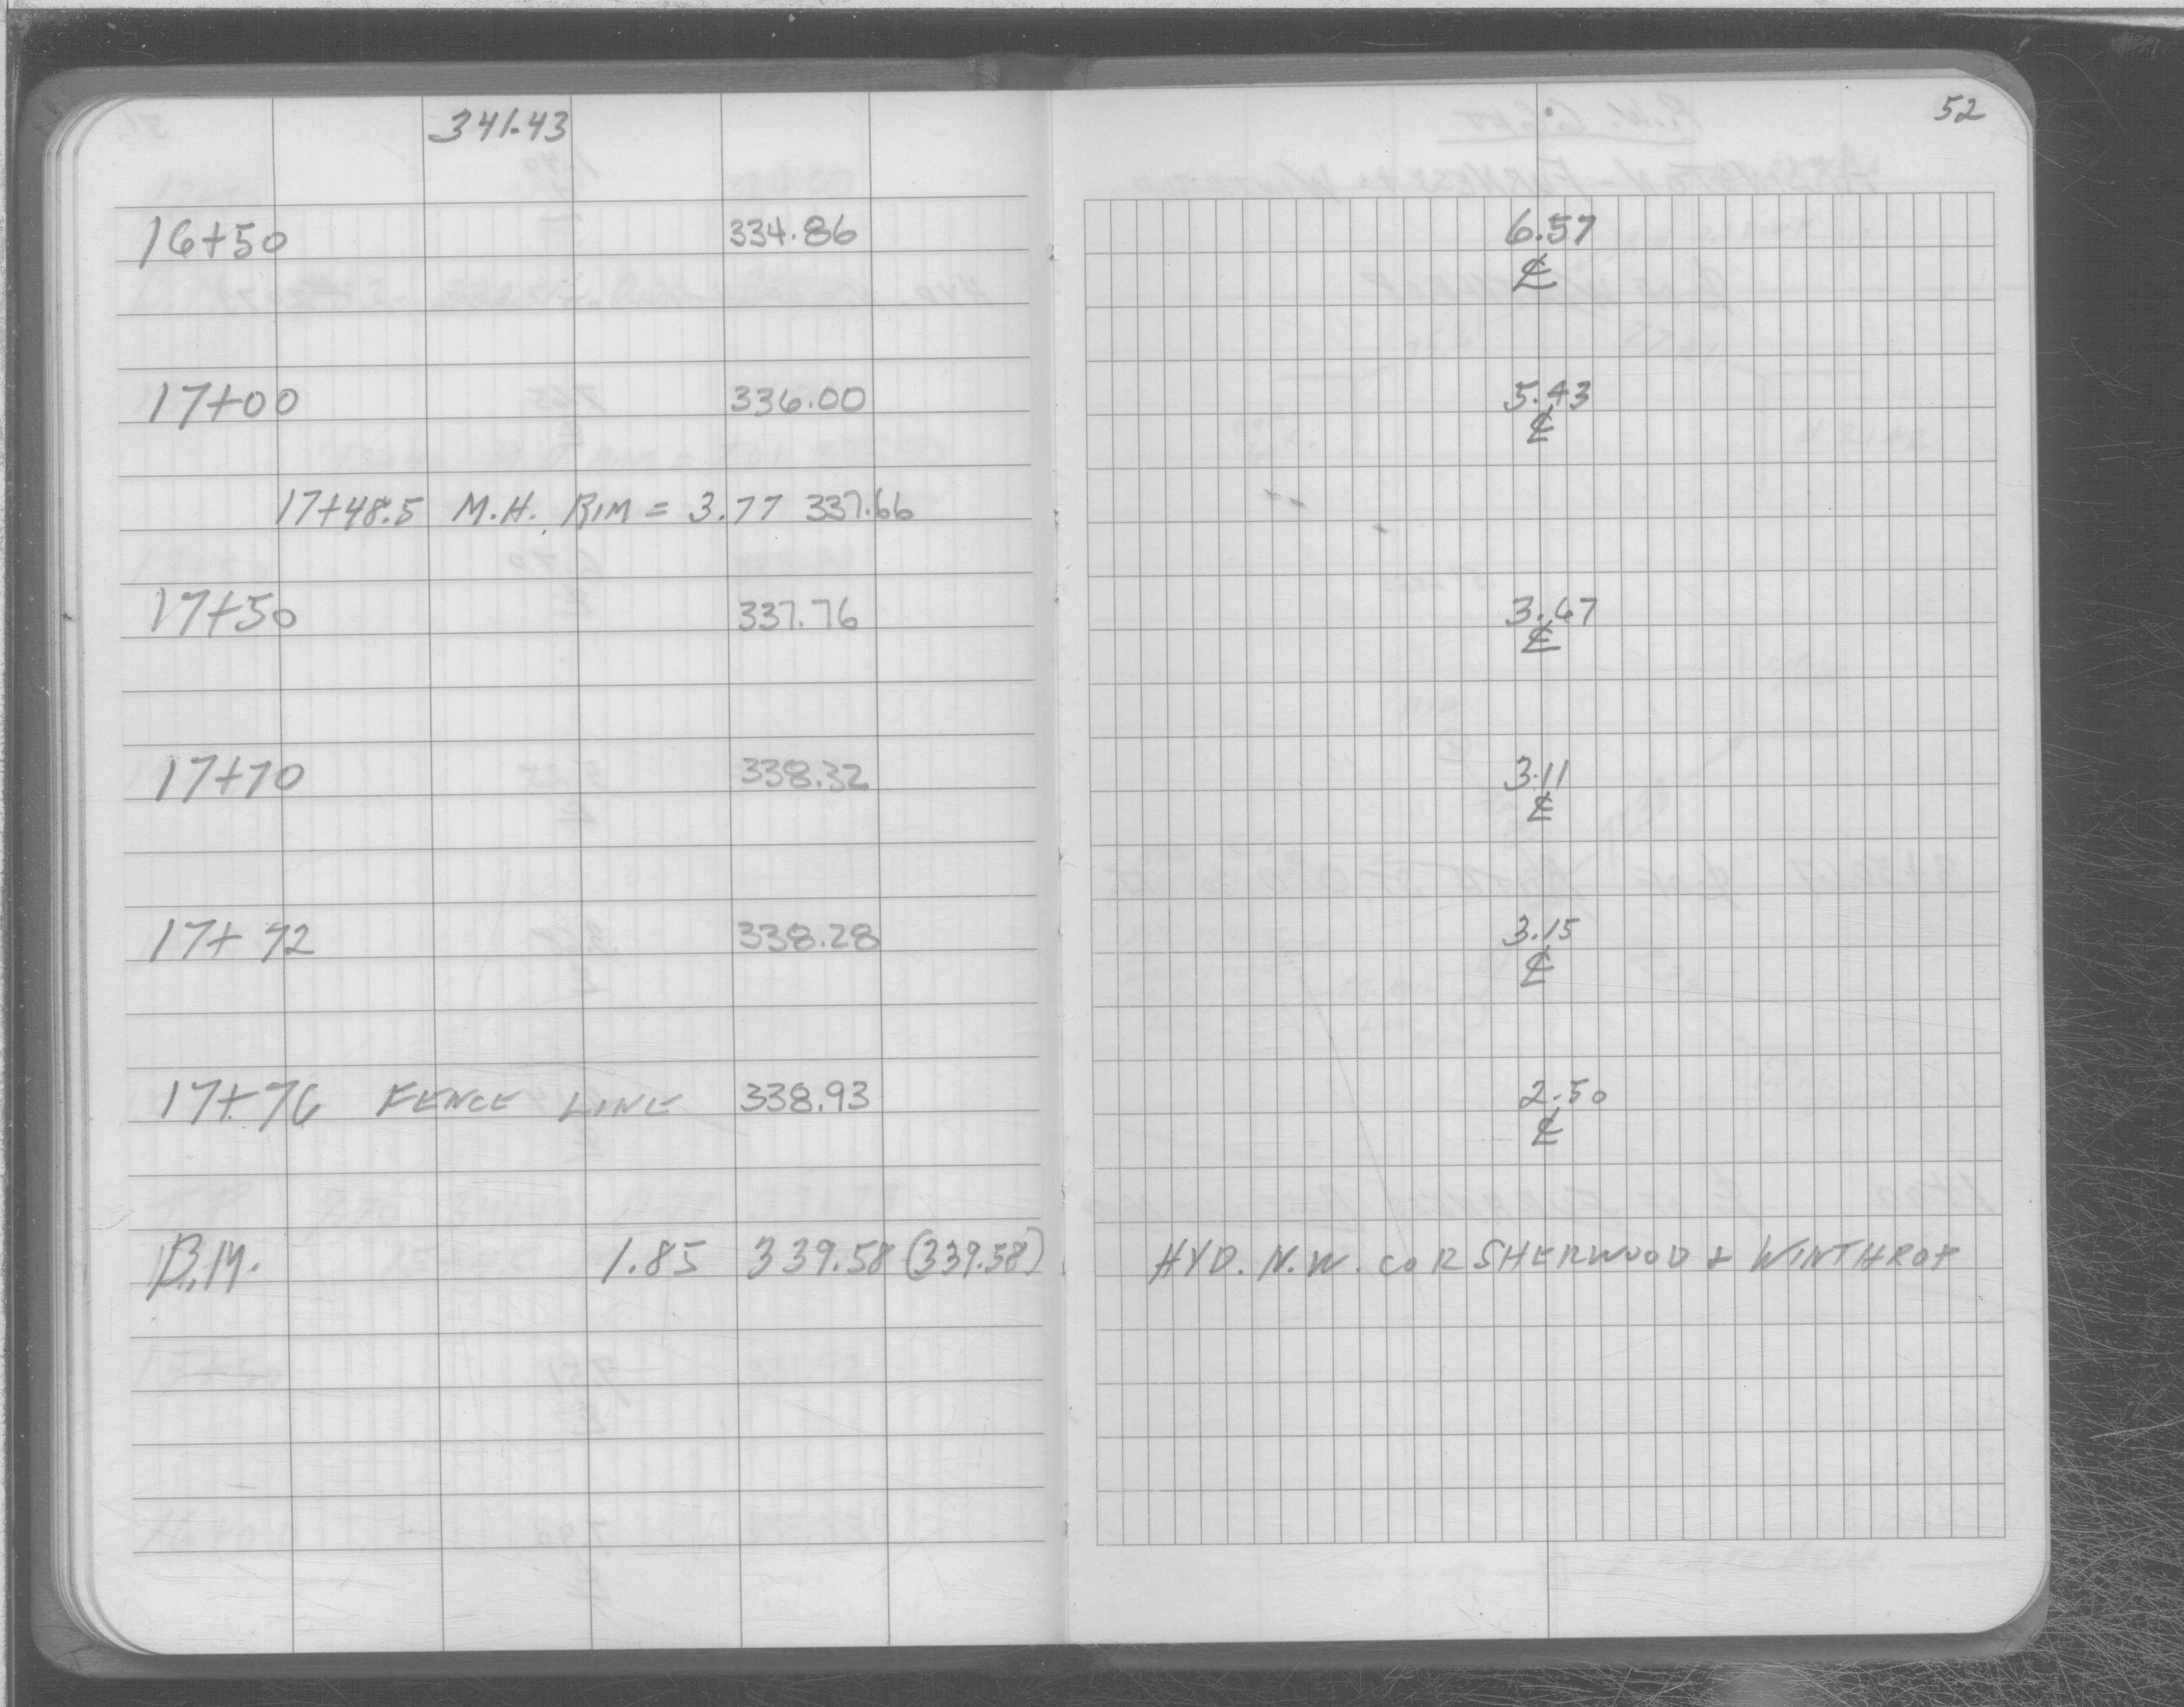 341.43 52
16+50 334.86 6.57
℄
17+00 336.00 5.43
℄
17+48.5 M.H. RIM = 3.77 337.66
17+50 337.76 3.67
℄
17+70 338.32 3.11
℄
17+72 338.28 3.15
℄
17+76 FENCE LINE 338.93 2.50
℄
B.M. 1.85 339.58 (339.58) HYD. N.W. COR SHERWOOD & WINTHROP